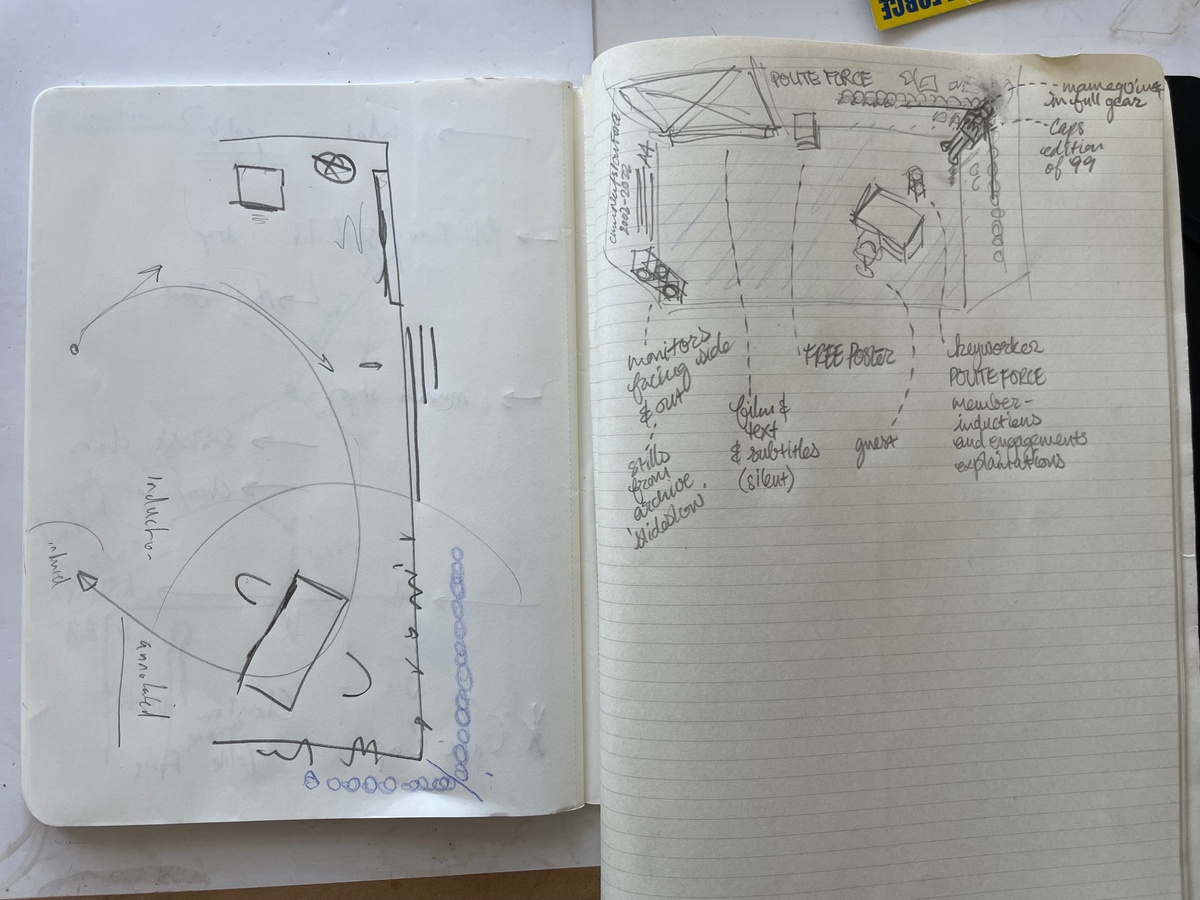 FORCE
Inductio-
annotated
POLITE FORCE
mannequins
in full gear
Caps
edition
of 99
A4
2002-2022
monitors
facing side
& out
stills
from
archive
slideshow
film &
text
& subtitles
(silent)
FREE POSTER
guest
keyworker
POLITE FORCE
member-
inductions
and engagements
explaintations